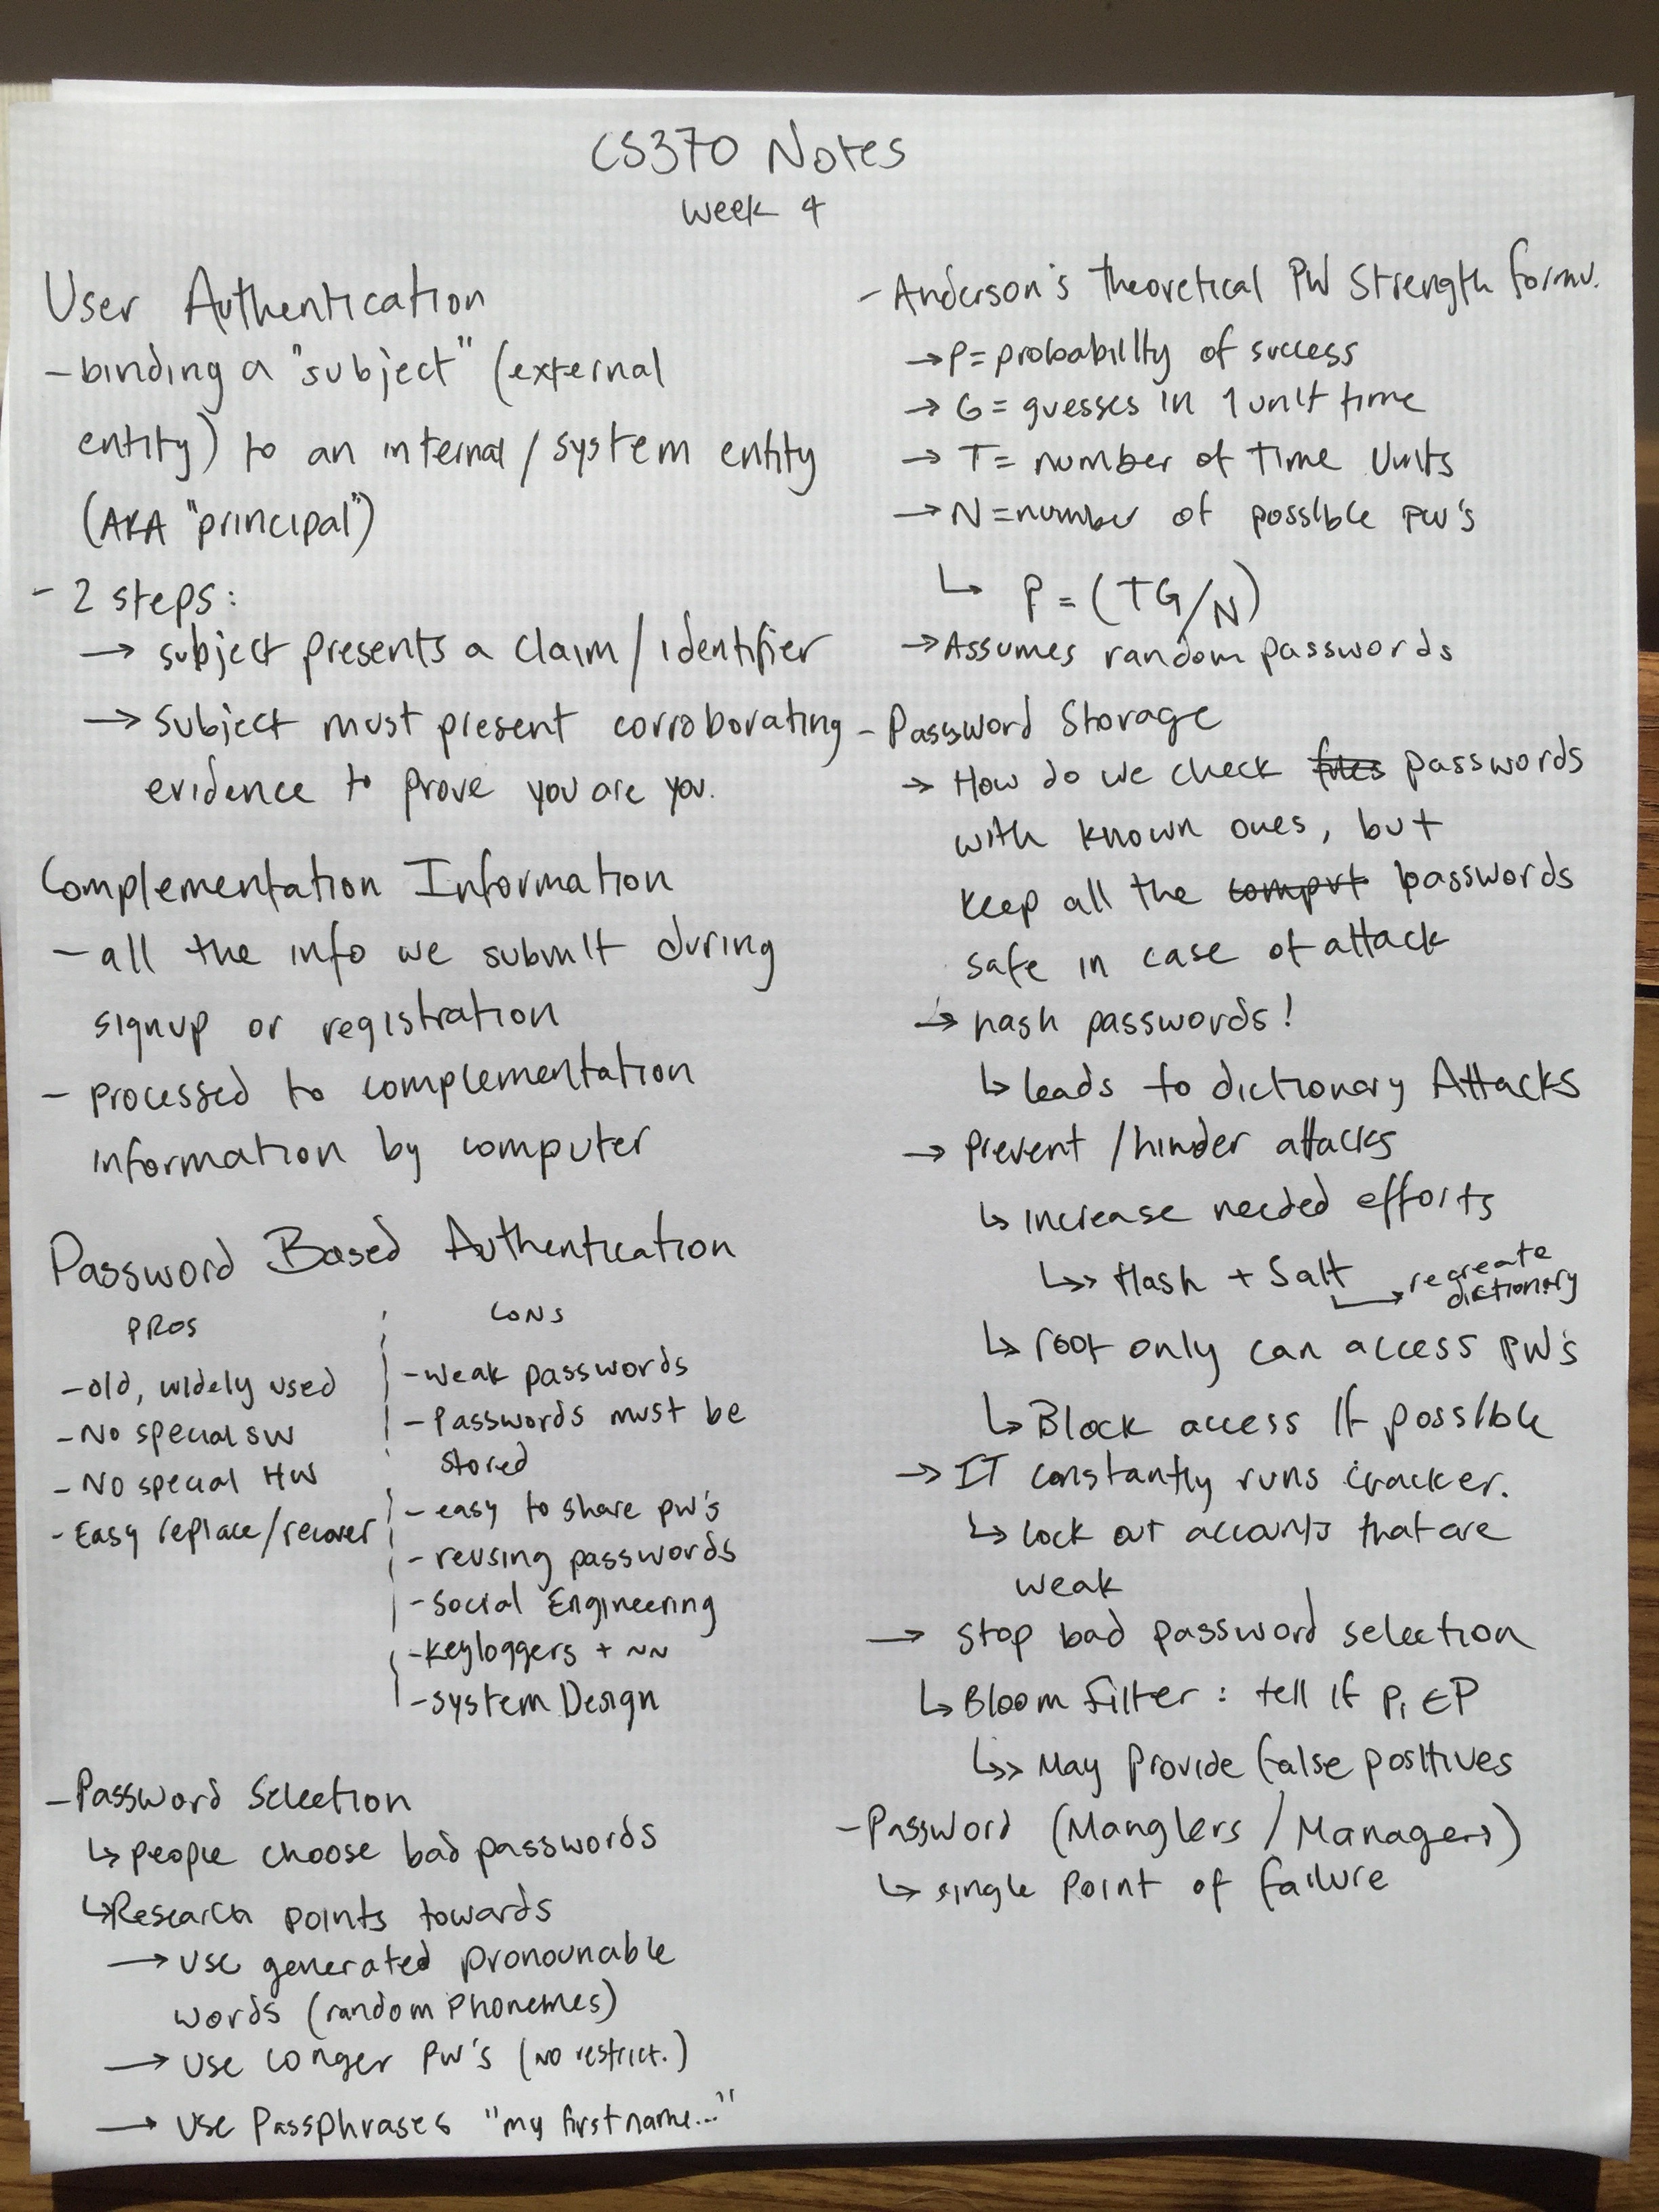 CS370 Notes
Week 4
User Authentication
- binding a "subject" (external
entity) to an internal/system entity
(AKA "principal")
- 2 steps:
→ subject presents a claim/identifier
→ subject must present corroborating
evidence to prove you are you.
Complementation Information
- all the info we submit during
signup or registration
- processed to complementation
information by computer
Password Based Authentication
PROS
- old, widely used
- No special SW
- No special HW
- Easy replace/recover
CONS
- weak passwords
- Passwords must be
stored
- easy to share pw's
- reusing passwords
- Social Engineering
- keyloggers +
- System Design
- Password Selection
↳ people choose bad passwords
↳ Research points towards
→ Use generated pronounable
words (random phonemes)
→ Use longer pw's (no restrict.)
→ Use Passphrases "my first name..."
- Anderson's theoretical PW Strength formu.
→ P = probability of success
→ G = guesses in 1 unit time
→ T = number of time units
→ N = number of possible pw's
↳ P = (TG/N)
→ Assumes random passwords
- Password Storage
→ How do we check passwords
with known ones, but
keep all the passwords
safe in case of attack
→ hash passwords!
↳ leads to dictionary Attacks
→ prevent/hinder attacks
↳ increase needed efforts
↳ Hash + Salt → recreate
dictionary
↳ root only can access pw's
↳ Block access if possible
→ IT constantly runs cracker.
↳ lock out accounts that are
weak
→ Stop bad password selection
↳ Bloom filter: tell if Pi ∈ P
↳ May provide false positives
- Password (Manglers/Managers)
↳ single point of failure